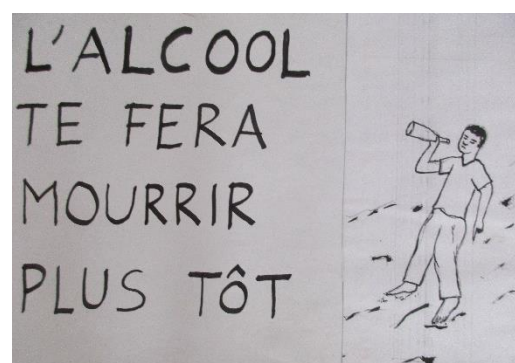 L'ALCOOL
TE FERA
MOURRIR
PLUS TÔT